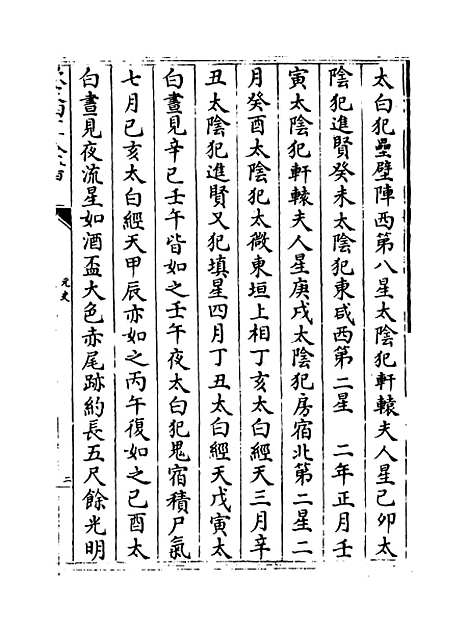 太白犯壘壁陣西第八星太陰犯軒轅夫人星己卯太
陰犯進賢癸未太陰犯東咸西第二星 二年正月壬
寅太陰犯軒轅夫人星庚戌太陰犯房宿北第二星二
月癸酉太陰犯太微東垣上相丁亥太白經天三月辛
丑太陰犯進賢又犯填星四月丁丑太白經天戊寅太
白晝見辛已壬午皆如之壬午夜太白犯鬼宿積尸氣
七月已亥太白經天甲辰亦如之丙午復如之已酉太
白晝見夜流星如酒盃大色赤尾跡約長五尺餘光明
元史
二